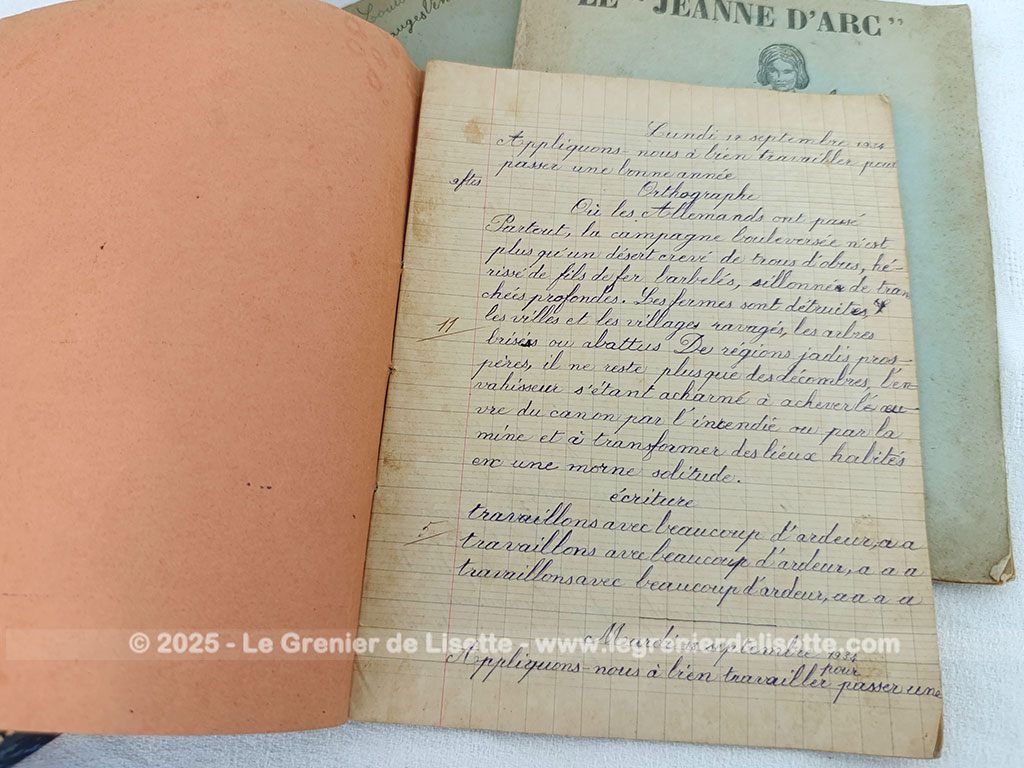 LE "JEANNE D'ARC"
Lundi 17 septembre 1934
Appliquons-nous à bien travailler pour
passer une bonne année
Orthographe
Où les Allemands ont passé
Partout, la campagne bouleversée n'est
plus qu'un désert crevé de trous d'obus, hé-
rissé de fils de fer barbelés, sillonnée de tran
chées profondes. Les fermes sont détruites,
11
les villes et les villages ravagés, les arbres
brisés ou abattus De régions jadis pros-
pères, il ne reste plus que des décombres, l'en-
vahisseur s'étant acharné à achever l'œu-
vre du canon par l'incendie ou par la
mine et à transformer des lieux habités
en une morne solitude.
écriture
5
travaillons avec beaucoup d'ardeur, a a
travaillons avec beaucoup d'ardeur, a a a
travaillons avec beaucoup d'ardeur, a a a a
© 2025 - Le Grenier de Lisette - www.legrenierdelisette.com
Mardi 18 septembre 1934
Appliquons-nous à bien travailler pour passer une